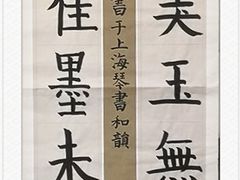 美玉無
書于上海琴書和韻
佳墨未